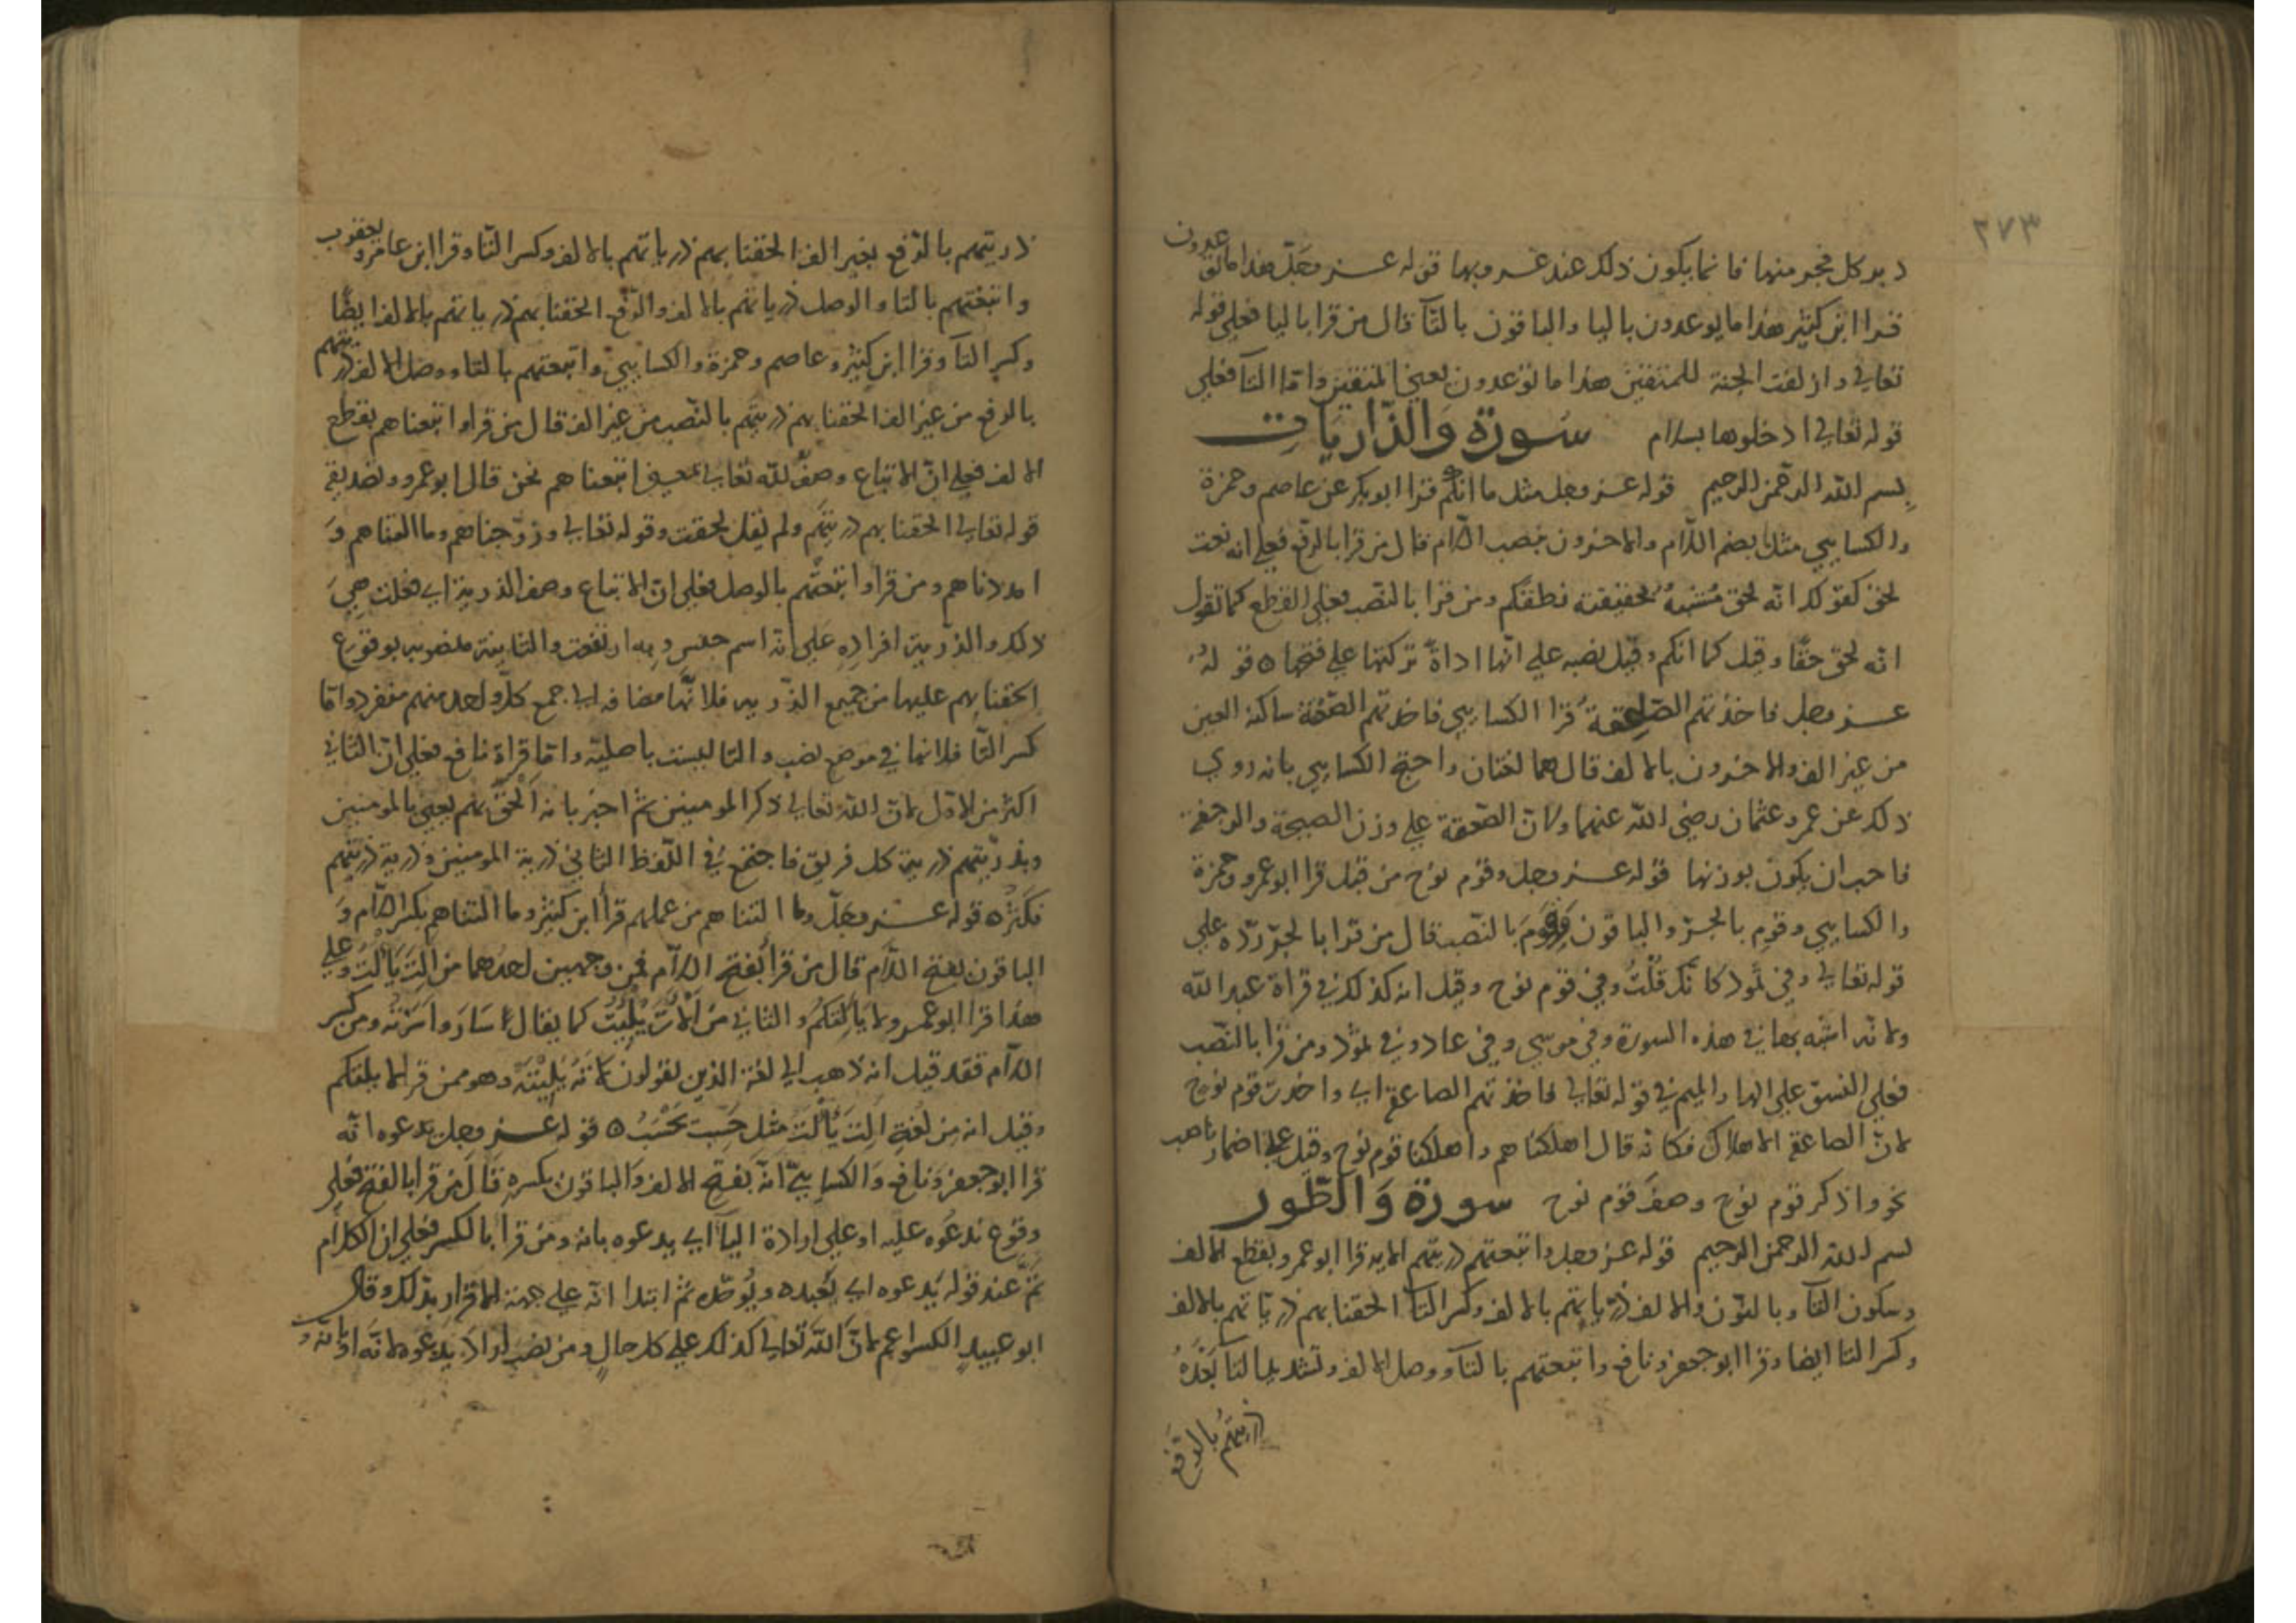 ٢٧٣
دبر كل فجر منها فانما يكون ذلك عند غروبها قوله عز وجل هذا ما توعدون
قرا ابن كثير هذا ما يوعدون باليا والباقون بالتآ قال من قرا باليا فعلى قوله
تعالى وازلفت الجنة للمتقين هذا ما توعدون يعني المتقين واما التآ فعلى
قوله تعالى ادخلوها بسلام سورة والذاريات
بسم الله الرحمن الرحيم قوله عز وجل مثل ما انكم قرا ابوبكر عن عاصم وحمزة
والكسايي مثل بضم اللام والاخرون بنصب اللام قال من قرا بالرفع فعلى انه نعت
لحق كقولك انه لحق مشبه بحقيقة نطقكم ومن قرا بالنصب فعلى القطع كما تقول
انه لحق حقا وقيل كما انكم وقيل نصبه على انها اداة تركتها على فتحها ه قوله
عز وجل فاخذتهم الصاعقة قرا الكسايي فاخذتهم الصعقة ساكنة العين
من غير الف والاخرون بالالف قال هما لغتان واحتج الكسايي بانه روي
ذلك عن عمر وعثمان رضي الله عنهما ولان الصعقة على وزن الصيحة والرجفة
فاحب ان يكون بوزنها قوله عز وجل وقوم نوح من قبل قرا ابو عمرو وحمزة
والكسايي وقوم بالجر والباقون وقوم بالنصب قال من قرا بالجر رده على
قوله تعالى وفي ثمود كانك قلت وفي قوم نوح وقيل انه كذلك في قراة عبد الله
ولانه اشبه بها في هذه السورة وفي موسي وفي عاد وفي ثمود ومن قرا بالنصب
فعلى النسق على الها والميم في قوله تعالى فاخذتهم الصاعقة اي واخذت قوم نوح
لان الصاعقة الاهلاك فكانه قال اهلكناهم واهلكنا قوم نوح وقيل على اضمار ناصب
نحو واذكر قوم نوح وصف قوم نوح سورة والطور
بسم الله الرحمن الرحيم قوله عز وجل واتبعتهم ذريتهم الايه قرا ابو عمرو بقطع الالف
وسكون التآ وبالنون والالف ذرياتهم بالالف وكسر التآ الحقنا بهم ذرياتهم بالالف
وكسر التا ايضا وقرا ابو جعفر ونافع واتبعتهم بالتآ ووصل الالف وتشديد التا بعده
ذريتهم بالرفع
ذريتهم بالرفع بغير الف الحقنا بهم ذرياتهم بالالف وكسر التا وقرا ابن عامر ويعقوب
واتبعتهم بالتا والوصل ذرياتهم بالالف والرفع الحقنا بهم ذرياتهم بالالف ايضا
وكسر التآ وقرا ابن كثير وعاصم وحمزة والكسايي واتبعتهم بالتا ووصل الالف ذريتهم
بالرفع من غير الف الحقنا بهم ذريتهم بالنصب من غير الف قال من قرا واتبعناهم بقطع
الالف فعلى ان الاتباع وصف لله تعالى بمعنى اتبعناهم نحن قال ابو عمرو وتصديقه
قوله تعالى الحقنا بهم ذريتهم ولم يقل لحقت وقوله تعالى وزوجناهم وما التناهم و
امددناهم ومن قرا واتبعتهم بالوصل فعلى ان الاتباع وصف الذرية اي فعلت هي
ذلك والذرية افراده على انه اسم جنس وبه ارتفعت والثانية منصوبه بوقوع
الحقنا بهم عليها من جميع الذريه فلانها مضافه الى جمع كل واحد منهم منفرد واما
كسر التا فلانها في موضع نصب والتا ليست باصلية واما قراة نافع فعلى ان الثاني
اكثر من الاول لان الله تعالى ذكر المومنين ثم اخبر بانه الحق بهم يعني بالمومنين
وبذريتهم ذرية كل فريق فاجتمع في اللفظ الثاني ذرية المومنين وذرية ذريتهم
فكثر ه قوله عز وجل وما التناهم من عملهم قرا ابن كثير وما التناهم بكسر اللام و
الباقون بفتح اللام قال من قرا بفتح اللام فمن وجهين احدهما من الت يألت وعلى
هذا قرا ابو عمرو لا يألتكم والثاني من الات يليت كما يقال اسار واسرته ومن كسر
اللام فقد قيل انه ذهب الى لغة الذين يقولون لاته يليته وهو ممن قرا لا يلتكم
وقيل انه من لغة الت يألت مثل حسب يحسب ه قوله عز وجل يدعوه انه
قرا ابو جعفر ونافع والكسايي انه بفتح الالف والباقون بكسره قال من قرا بالفتح فعلى
وقوع ندعوه عليه او على ارادة اليآ اي يدعوه بانه ومن قرا بالكسر فعلى ان الكلام
تم عند قوله يدعوه اي يعبده ويوحده ثم ابتدا انه على جهة الاقرار بذلك وقال
ابو عبيد الكسر اعم لان الله تعالى كذلك على كل حال ومن نصب اراد يدعوه لانه او بانه و